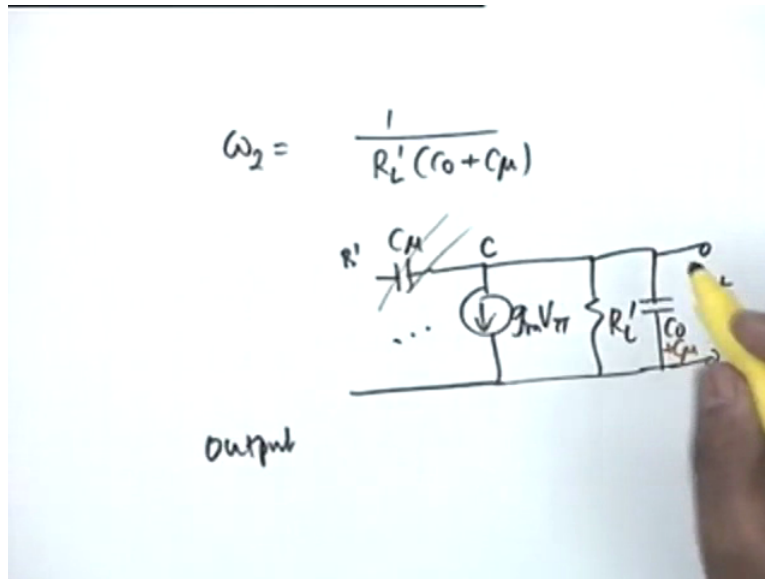 ω₂ = 1 / R_L' (C₀ + Cμ)
B' Cμ C
... g_m V_π R_L' C₀
+Cμ
output